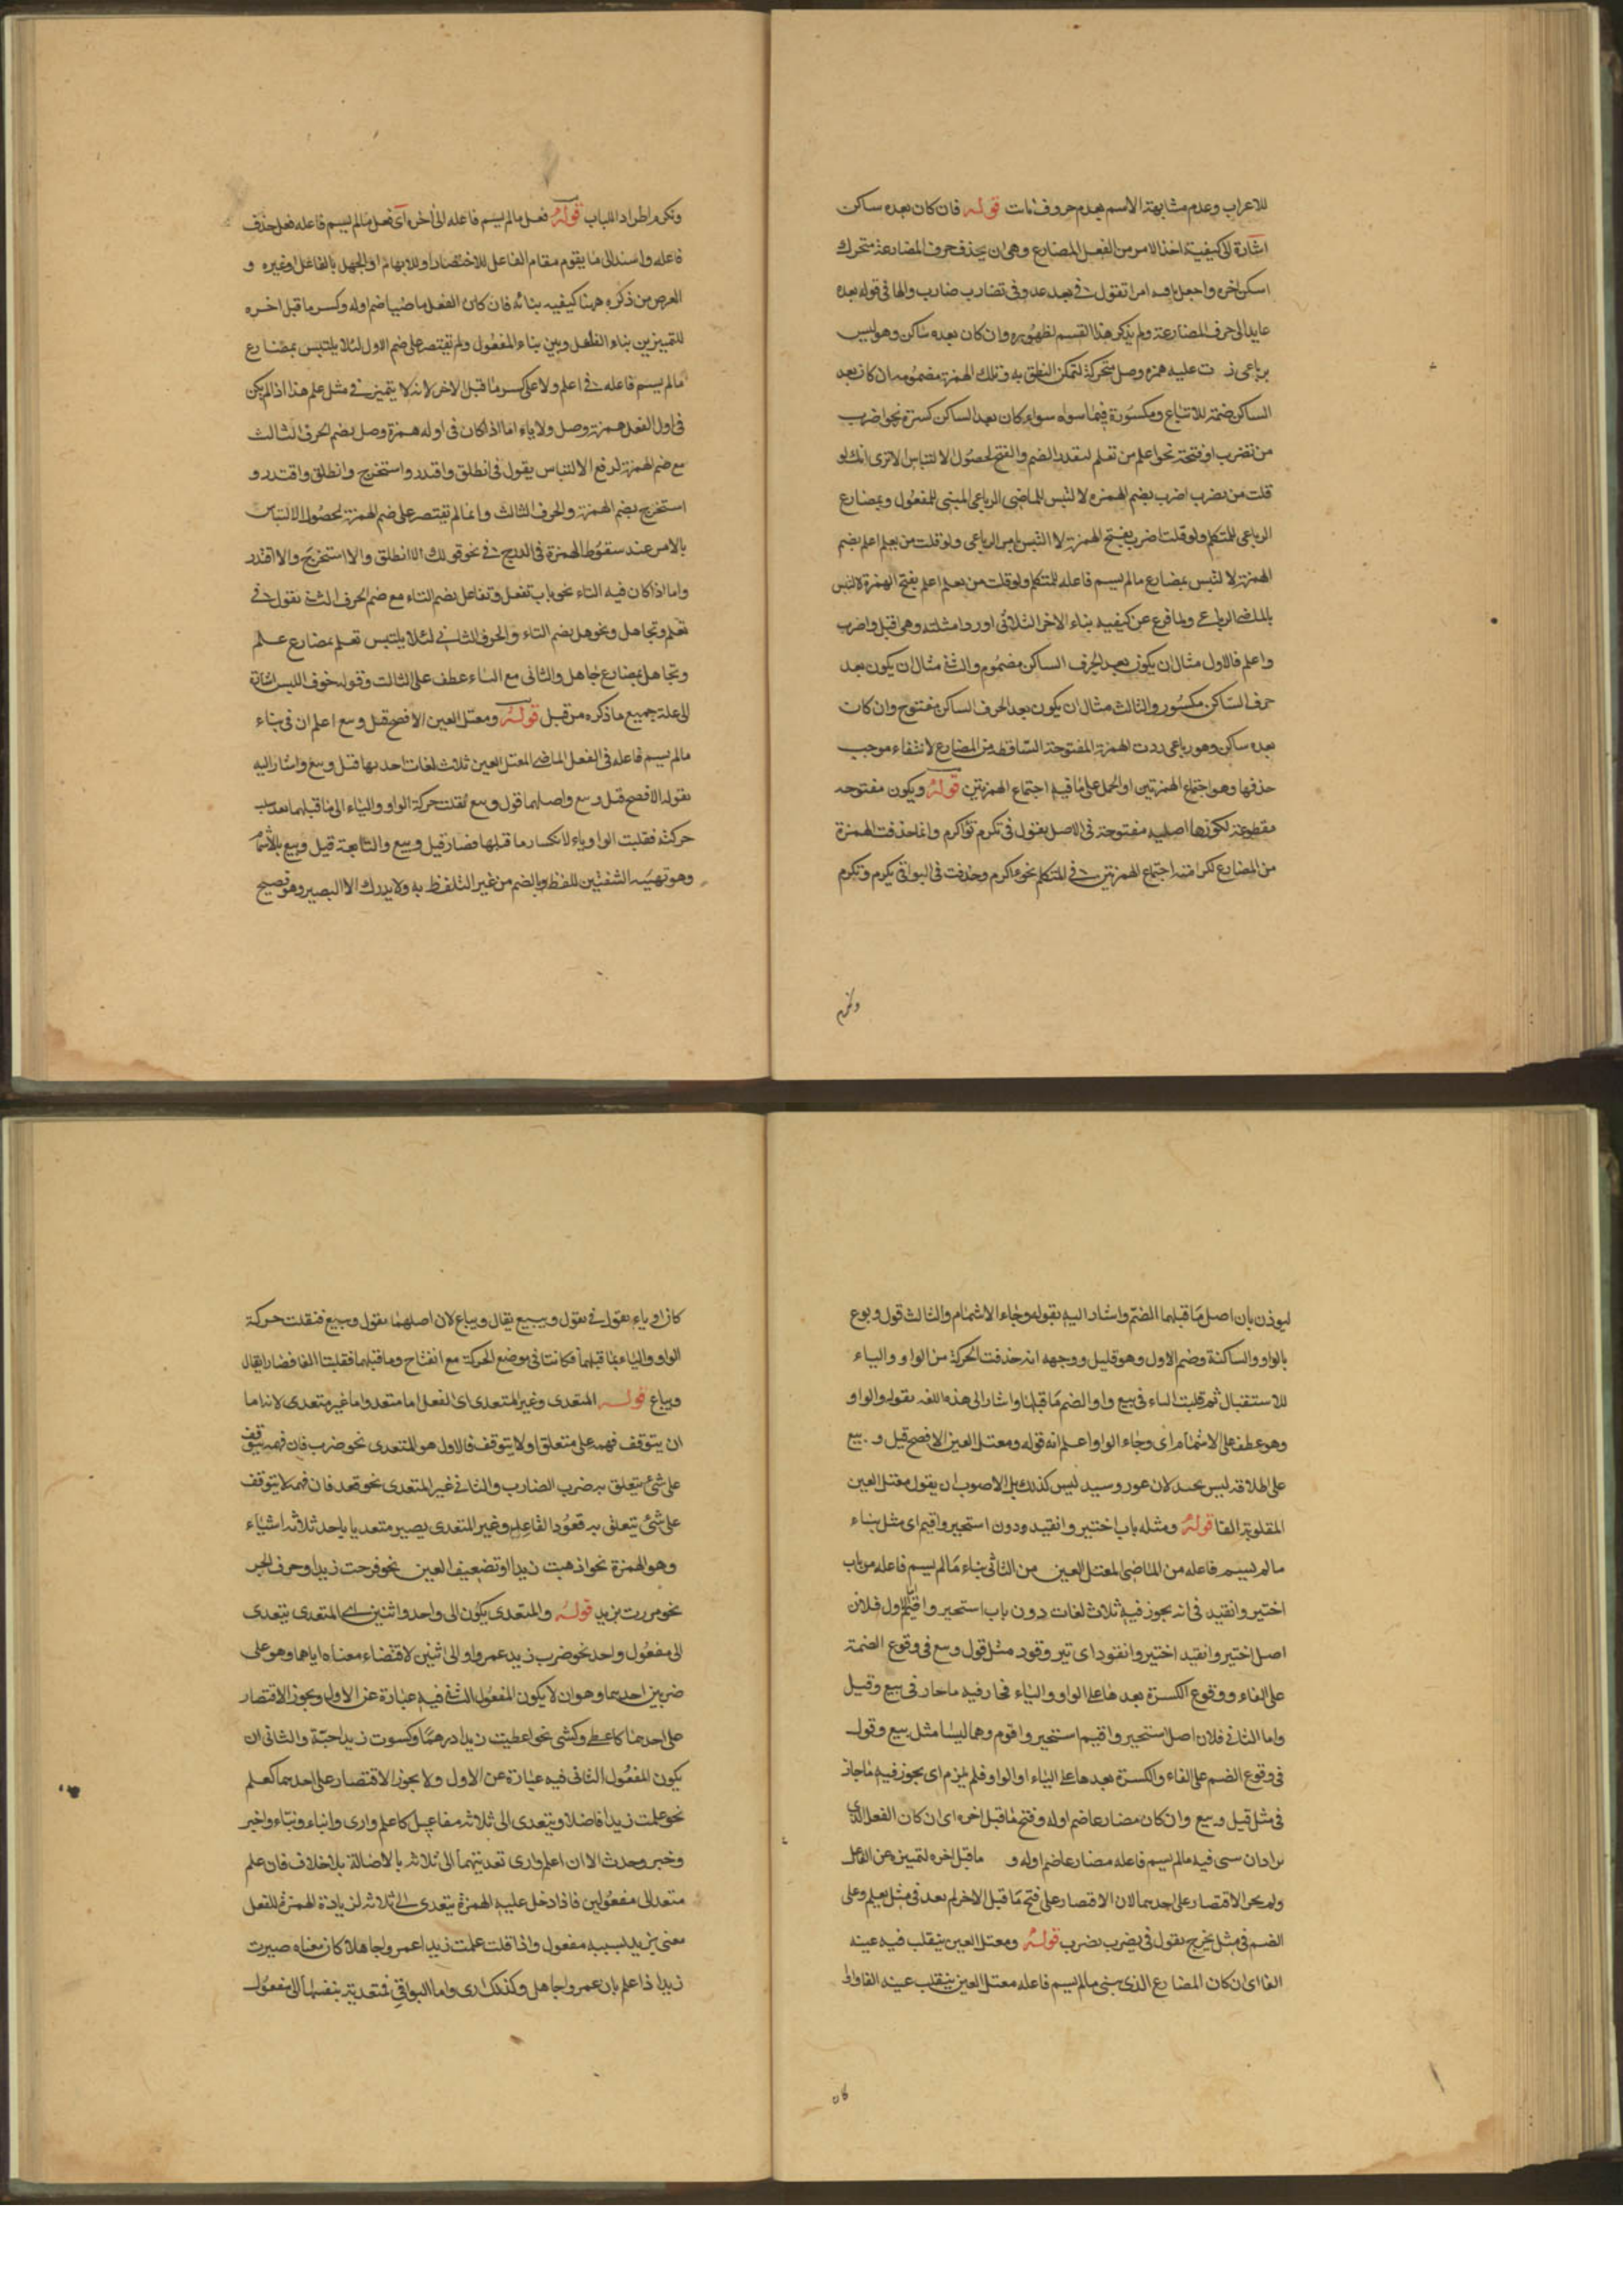 للاعراب وعدم مشابهته الاسم بعدم حروف نات قوله فان كان بعده ساكن
اشارة الى كيفية اخذ الامر من الفعل المضارع وهى ان يحذف حرف المضارعة متحرك
اسكن اخره واجعل باقيه امرا تقول فى بعد عد وفى تضارب ضارب والها فى قوله بعده
عايد الى حرف المضارعة ولم يذكر هذا القسم لظهوره وان كان بعده ساكن وهو ليس
برباعى زدت عليه همزة وصل متحركة لتمكن النطق به وتلك الهمزة مضمومة ان كان بعد
الساكن ضمة للاتباع ومكسورة فيما سواه سواء كان بعد الساكن كسرة نحو اضرب
من تضرب او فتحة نحو اعلم من تعلم لتعذر الضم والفتح لحصول الالتباس الا ترى انك لو
قلت من يضرب اضرب بضم الهمزة لا لتبس للماضى الرباعى المبنى للمفعول وبمضارع
الرباعى للمتكلم ولو قلت اضرب بفتح الهمزة لا التبس بامر الرباعى ولو قلت من يعلم اعلم بضم
الهمزة لا لتبس بمضارع مالم يسم فاعله للمتكلم ولو قلت من يعلم اعلم بفتح الهمزة لا لتبس
بالماضى الرباعى ولما فرغ عن كيفية بناء الاخر الثلاثى اورد امثلته وهى اقتل واضرب
واعلم فالاول مثال ان يكون بعد الحرف الساكن مضموم والثانى مثال ان يكون بعد
حرف الساكن مكسور والثالث مثال ان يكون بعد الحرف الساكن مفتوح وان كان
بعده ساكن وهو رباعى ردت الهمزة المفتوحة الساقطة من المضارع لانتفاء موجب
حذفها وهو اجتماع الهمزتين او الحمل على ما فيه اجتماع الهمزتين قوله ويكون مفتوحه
مقطوعة لكونها اصلية مفتوحة فى الاصل يقول فى تكرم تؤاكرم وانما حذفت الهمزة
من المضارع لكراهة اجتماع الهمزتين فى المتكلم نحو ءاكرم وحذفت فى البواقى يكرم وتكرم
ونكرم
ونكرم اطراد اللباب قوله فعل مالم يسم فاعله الى اخره اى فعل مالم يسم فاعله فعل حذف
فاعله واسند الى ما يقوم مقام الفاعل للاختصار او للابهام او الجهل بالفاعل او غيره و
الغرض من ذكره ههنا كيفيه بنائه فان كان الفعل ماضيا ضم اوله وكسر ما قبل اخره
للتمييز بين بناء الفاعل وبين بناء المفعول ولم تقتصر على ضم الاول لئلا يلتبس بمضارع
مالم يسم فاعله فى اعلم ولا على كسر ما قبل الاخر لانه لا يتميز فى مثل علم هذا اذا لم يكن
فى اول الفعل همزة وصل ولا ياء اما اذا كان فى اوله همزة وصل يضم الحرف الثالث
مع ضم الهمزة لدفع الالتباس يقول فى انطلق واقتدر واستخرج وانطلق واقتدر و
استخرج بضم الهمزة والحرف الثالث وانما لم تقتصر على ضم الهمزة لحصول الالتباس
بالامر عند سقوط الهمزة فى الدرج فى نحو قولك الا انطلق والا استخرج والا اقتدر
واما اذا كان فيه التاء نحو باب تفعل وتفاعل بضم التاء مع ضم الحرف الثانى تقول فى
تعلم وتجاهل ونحوهل بضم التاء والحرف الثانى لئلا يلتبس تعلم بمضارع علم
وتجاهل بمضارع جاهل والثانى مع التاء عطف على الثالث وقوله خوف اللبس اشارة
الى علة جميع ما ذكره من قبل قوله ومعتل العين الافصح قيل وبيع اعلم ان فى بناء
مالم يسم فاعله فى الفعل الماضى المعتل العين ثلاث لغات احديها قيل وبيع واشار اليه
بقوله الافصح قيل وبيع واصلهما قول وبيع نقلت حركة الواو والياء الى ما قبلهما بعد سلب
حركته فقلبت الواو ياء لانكسار ما قبلها فصار قيل وبيع والثانية قيل وبيع بالاشمام
وهو تهيئة الشفتين للفظ بالضم من غير التلفظ به ولا يدرك الا البصير وهو فصيح
ليوذن بان اصل ما قبلهما الضم واشار اليه بقوله وجاء الاشمام والثالث قول وبوع
بالواو والساكنة وضم الاول وهو قليل ووجهه انه حذفت الحركة من الواو والياء
للاستثقال ثم قلبت الياء فى بيع واوا لضم ما قبلها واشار الى هذه اللغه بقوله والواو
وهو عطف على الاشمام اى وجاء الواو اعلم انه قوله ومعتل العين الافصح قيل وبيع
على اطلاقه ليس بجيد لان عور وسيد ليس كذلك بل الاصوب ان يقول معتل العين
المقلوبة الفا قوله ومثله باب اختير وانقيد ودون استحير واقيم اى مثل بناء
مالم يسم فاعله من الماضى المعتل العين من الثانى بناء مالم يسم فاعله من باب
اختير وانقيد فى انه يجوز فيه ثلاث لغات دون باب استحير واقيم الاول فلان
اصل اختير وانقيد اختير وانقود اى تير وقود مثل قول وبيع فى وقوع الضمة
على الفاء ووقوع الكسرة بعدها على الواو والياء فجاز فيه ما جاز فى بيع وقيل
واما الثانى فلان اصل استحير واقيم استخير واقوم وهما ليسا مثل بيع وقول
فى وقوع الضم على الفاء والكسرة بعدها على الياء او الواو فلم يلزم اى يجوز فيه ما جاز
فى مثل قيل وبيع وان كان مضارعا ضم اوله وفتح ما قبل اخره اى ان كان الفعل الذى
يراد ان يبنى فيه مالم يسم فاعله مضارعا ضم اوله و ما قبل اخره لتمييزه عن الفاعل
ولم يجز الاقتصار على احدهما لان الاقتصار على فتح ما قبل الاخر لم يعد فى مثل يعلم وعلى
الضم فى مثل يخرج يقول فى يضرب يضرب قوله ومعتل العين ينقلب فيه عينه
الفا اى ان كان المضارع الذى يبنى مالم يسم فاعله معتل العين ينقلب عينه الفا واوا
كان
كان او ياء تقول فى يقول ويبيع يقال ويباع لان اصلهما يقول ويبيع فنقلت حركة
الواو والياء بما قبلهما فكانتا فى موضع الحركة مع انفتاح وما قبلهما فقلبتا الفا فصار يقال
ويباع قوله المتعدى وغير المتعدى اى الفعل اما متعد واما غير متعدى لانه اما
ان يتوقف فهمه على متعلق او لا يتوقف فالاول هو المتعدى نحو ضرب فان فهمه يتوقف
على شئ يتعلق به ضرب الضارب والثانى غير المتعدى نحو قعد فان فهمه لا يتوقف
على شئ يتعلق به قعود القاعد وغير المتعدى يصير متعديا باحد ثلاثة اشياء
وهو الهمزة نحو اذهبت زيدا او تضعيف العين نحو فرحت زيدا وحرف الجر
نحو مررت بزيد قوله والمتعدى يكون الى واحد واثنين اى المتعدى يتعدى
الى مفعول واحد نحو ضرب زيد عمروا والى اثنين لاقتضاء معناه اياهما وهو على
ضربين احدهما وهو ان لا يكون المفعول الثانى فيه عبارة عن الاول ويجوز الاقتصار
على احدهما كاعطى وكسى نحو اعطيت زيدا درهما وكسوت زيدا جبة والثانى ان
يكون المفعول الثانى فيه عبارة عن الاول ولا يجوز الاقتصار على احدهما كعلم
نحو علمت زيدا فاضلا ويتعدى الى ثلاثة مفاعيل كاعلم وارى وانباء ونباء واخبر
وخبر وحدث الا ان اعلم وارى تعديتهما الى ثلاثة بالاصالة بلا خلاف فان علم
متعد الى مفعولين فاذا دخل عليه الهمزة يتعدى الى ثلاثة لزيادة الهمزة للفعل
معنى يزيد بسببه مفعول واذا قلت علمت زيدا عمروا جاهلا كان معناه صيرت
زيدا ذا علم بان عمروا جاهل وكذلك ارى واما البواقى فتعديته بنفسها الى مفعول